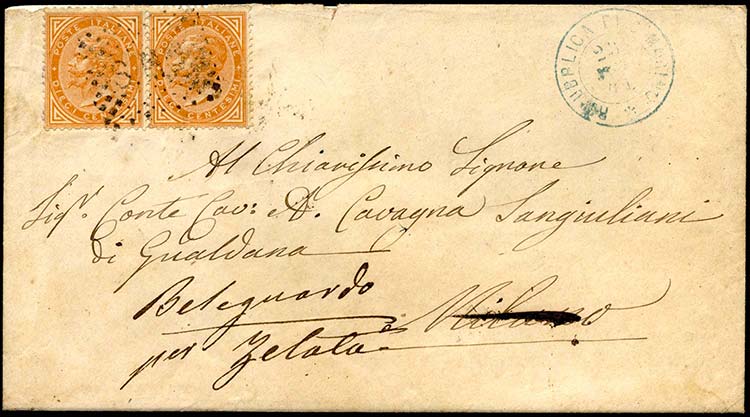 POSTE ITALIANE POSTE ITALIANE
DIECI CENTESIMI DIECI CENTESIMI
Al Chiarissimo Signore
Sigr. Conte Cav: A. Cavagna Sangiuliani
di Gualdana
Bereguardo
per Zelata
Milano